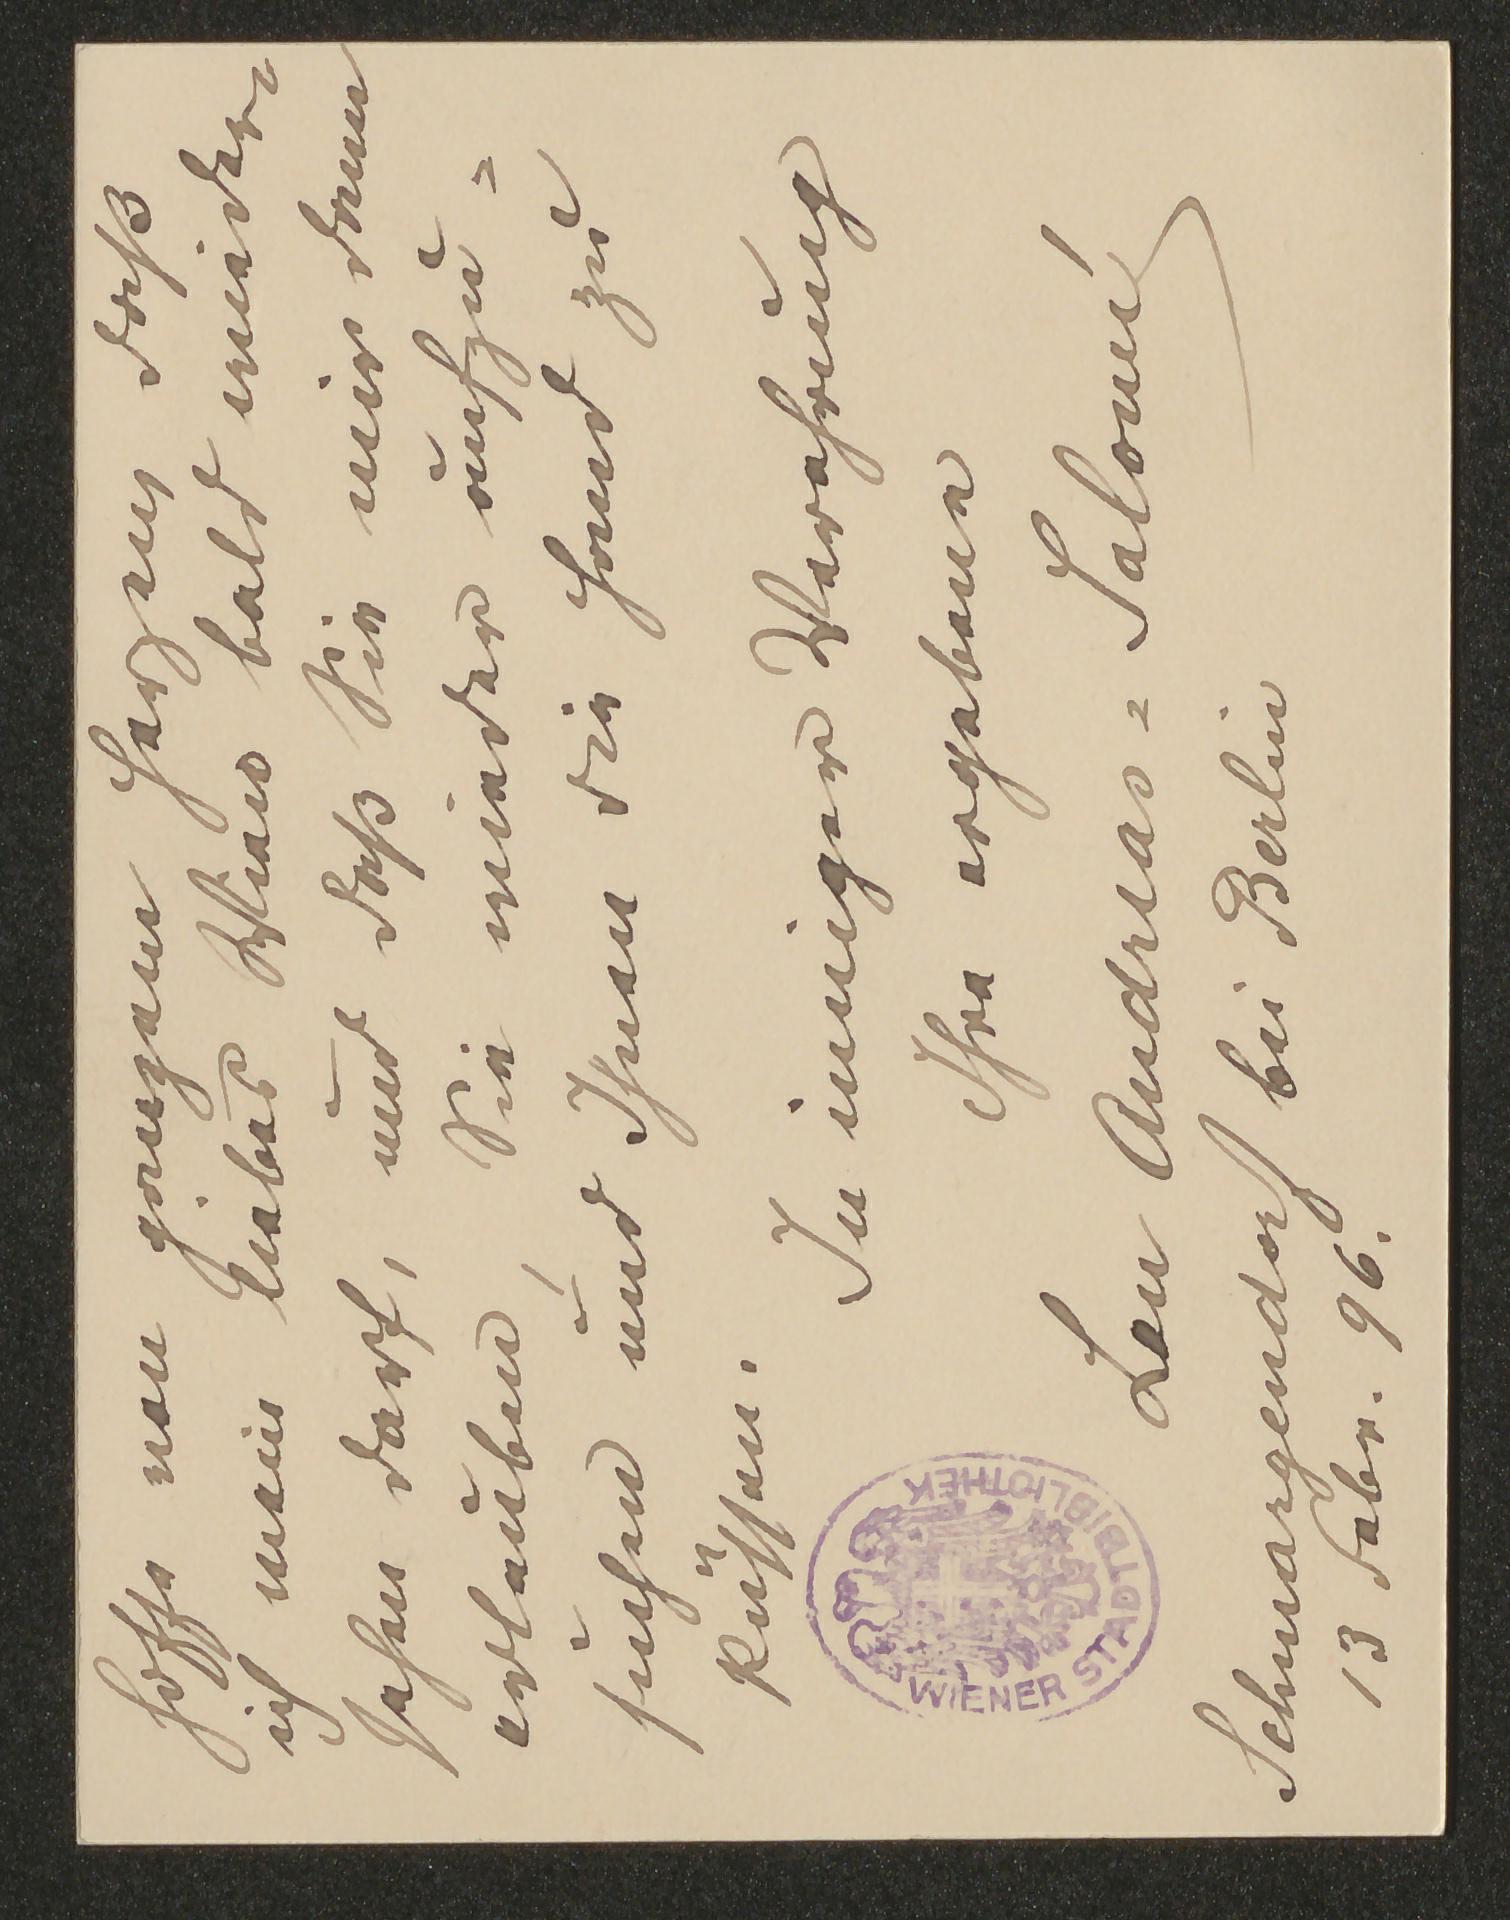 hoffe von ganzem Herzen daß
ich mein liebes Wien bald wieder=
sehen darf, und daß Sie mir dann
erlauben, Sie wieder aufzu=
suchen und Ihnen die Hand zu
küssen.
In inniger Verehrung
Ihre ergebene
Lou Andreas=Salomé
Schmargendorf bei Berlin
13 Febr. 96.
WIENER STADTBIBLIOTHEK